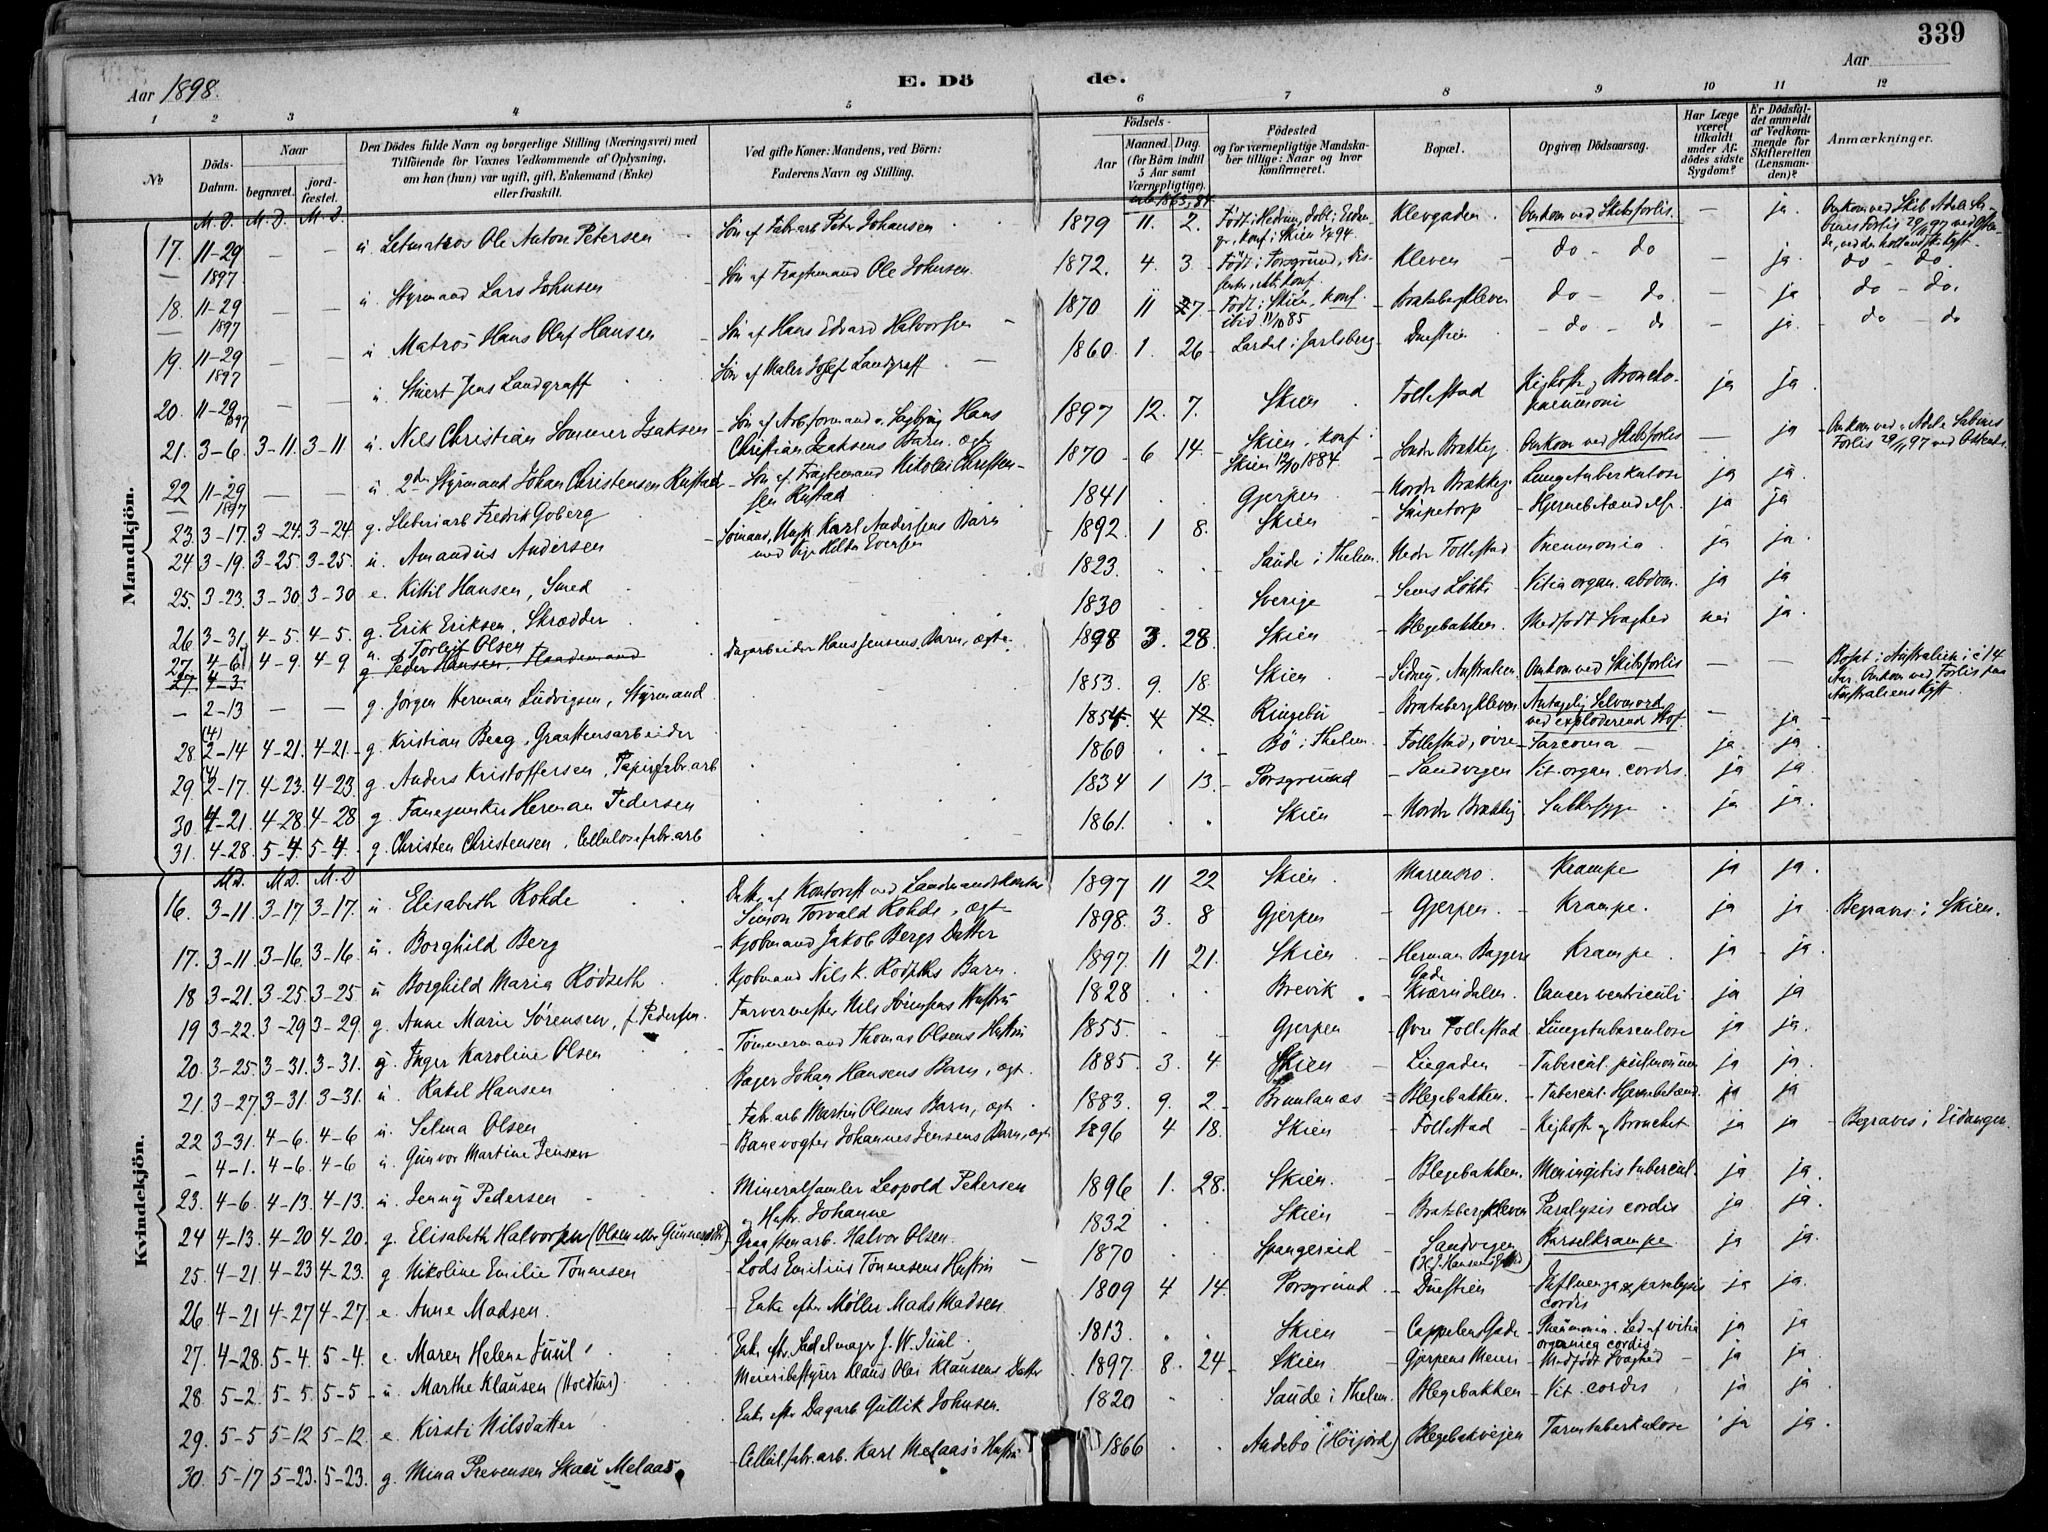 339
Aar 1898.
E. Döde.
Aar
1 2 3 4 5 6 7 8 9 10 11 12
No
Döds-Datum.
Naar
begravet.
jord-fæstet.
Den Dödes fulde Navn og borgerlige Stilling (Næringsvei) med
Tilföiende for Voxnes Vedkommende af Oplysning,
om han (hun) var ugift, gift, Enkemand (Enke)
eller fraskilt.
Ved gifte Koner: Mandens, ved Börn:
Faderens Navn og Stilling.
Födsels-
Aar
Maaned. Dag.
(for Börn indtil
5 Aar samt
Værnepligtige).
Födested
og for værnepligtige Mandska-
ber tillige: Naar og hvor
konfirmeret.
Bopæl.
Opgiven Dödsaarsag.
Har Læge
været
tilkaldt
under Af-
dödes sidste
Sygdom?
Er Dödsfal-
det anmeldt
af Vedkom-
mende for
Skifteretten
(Lensman-
den)?
Anmærkninger.
Mandkjön.
M. D. M. D. M. D.
17. 11-29 1897 — — u Letmatros Ole Anton Petersen Sön af Fabr.arb Peter Johansen 1879 11. 2. Født i Hedrum, døbt i Eidan-gr, konf. i Skien 1/4 94. Klevgaden Omkom ved Skibsforlis — ja. Omkom ved Skib Adele Sa-bines Forlis 29/11 97 ved Osten-de, ved den hollandsk Kyst.
18. 11-29 1897 — — u Styrmand Lars Johnsen Sön af Fragtemand Ole Johnsen 1872. 4. 3. Født i Porsgrund, Kleven do - do — ja. do - do.
19. 11-29 1897 — — u Matros Hans Oluf Hansen Sön af Hans Edvard Halvorsen 1870 11 27 Født i Skien, konf. ibid 11/10 85 Bratsbergkleven do - do — ja do - do.
20. 11-29 1897 — — u Stuert Jens Landgraff Sön af Maler Josef Landgraff 1860 1. 26 Lardal i Jarlsberg Duestien do - do — ja. do - do
21. 3-6. 3-11. 3-11 u. Nils Christian Sommer Isaksen Sön af Arb.formand Hans Christian Isaksens Barn. ægt 1897 12. 7. Skien Follestad Kighoste og Broncho-pneumoni ja ja
22 11-29 1897 — — u. 2den Styrmand Johan Christensen Rustad Sön af Fragtemand Nikolai Christen-sen Rustad 1870 6 14. Skien, konf. Skien 12/10 1884. Søndre Brekkeg. Omkom ved Skibsforlis — ja Omkom ved Adele Sabines Forlis 29/11 97 ved Ostende.
23. 3-17. 3-24. 3-24. g. Sleberiarb Fredrik Goberg 1841 Gjerpen Nordre Brekkeg. Lungetuberkulose ja ja.
24 3-19. 3-25. 3-25. u. Amandus Andersen Sømand, Ungk. Karl Andersens Barn med Pige Hilda Evensen 1892. 1 8. Skien Snipetorp Hjernebetændelse. ja ja
25. 3-23. 3-30 3-30 e. Kittil Hansen, Smed 1823. Saude i Thelem. Nedre Follestad Pneumonia. ja ja.
26 3-31. 4-5. 4-5. g. Erik Eriksen, Skrædder 1830 Sverige Sems Løkke Vitia organ. abdom. ja ja
27. 4-6 4-9. 4-9 u Torleif Olsen Dagarbeider Hans Jensens Barn, ægte 1898 3. 28. Skien Blegebakken. Medfødt Svaghed nei ja.
27. 4-3 g Peder Hansen, Flaademand
— 2-13 — — g. Jørgen Herman Ludvigsen, Styrmand 1853. 9. 18. Skien Sidney, Australien. Omkom ved Skibsforlis — — Bosat i Australien i c 14 Aar. Omkom ved Forlis paa Australiens Kyst.
28. (4) 2-14 4-21. 4-21. g. Kristian Berg, Graastensarbeider 1854 4 12 Ringebu Bratsbergkleven Antagelig Selvmord ved exploderend Stof. — ja
29. (4) 2-17. 4-23. 4-23. g. Anders Kristoffersen, Papirfabr.arb 1860 Bø i Thelem. Follestad, øvre Sarcoma ja ja.
30 4-21. 4-28. 4-28 g. Herman Pedersen 1834 1 13. Porsgrund Sandvigen Vit. organ. cordis. ja ja
31. 4-28. 5-4. 5-4. g. Christen Christensen, Cellulosefabr.arb 1861. Skien Nordre Brekkeg Sukkersyge ja ja
Kvindekjön.
M.D. M.D. M.D
16. 3-11. 3-17 3-17. u Elisabeth Rohde Datter af Kontorist ved Simon Torvald Rohde, ægt 1897 11 22 Skien. Marensro. Krampe ja ja.
17. 3-11. 3-16. 3-16. u. Borghild Berg Kjøbmand Jakob Bergs Datter 1898. 3. 8 Gjerpen Gjerpen. Krampe. ja ja Begraves i Skien.
18 3-21. 3-25 3-25 u Borghild Maria Rødseth Kjøbmand Nils K. Rødseths Barn. 1897. 11 21. Skien Herman Baggers Gade Krampe. ja ja
19 3-22. 3-29 3-29. g. Anne Marie Sørensen, f. Pedersen. Farvermester Nils Sørensens Hustru 1828 Brevik Kværndalen. Cancer ventriculi ja ja
20. 3-25. 3-31. 3-31. g. Inger Karoline Olsen Tømmermand Thomas Olsens Hustru 1855. Gjerpen Øvre Follestad Lungetuberculose ja ja.
21. 3-27. 3-31. 3-31. u. Rakel Hansen Bager Johan Hansens Barn, ægt. 1885. 3. 4 Skien Liegaden Tubercul. pulmonum ja ja.
22 3-31. 4-6. 4-6 u. Selma Olsen Fabr.arb Martin Olsens Barn, ægt 1883. 9. 2. Brunlanæs Blegebakken. Tubercul. Hjernebetænd. ja ja
— 4-1. 4-6. 4-6 u. Gunvor Martine Jensen Banevogter Johannes Jensens Barn, ægt 1896 4 18. Skien Follestad Kighoste og Bronchit ja ja Begraves i Eidanger.
23. 4-6. 4-13. 4-13. u. Jenny Pedersen Mineralsamler Leopold Pedersen og Hustr. Johanne 1896 1. 28. Skien. Blegebakken. Meningitis tubercul. ja ja.
24 4-13. 4-20 4-20. g. Elisabeth Halvorsen (Olsen eller Gunnarsdtr) Graastenarb. Halvor Olsen. 1832 Skien Bratsbergkleven Paralysis cordis ja ja.
25. 4-21. 4-23 4-23. g Nikoline Emilie Tønnesen Lods Emilius Tønnesens Hustru 1870 Spangereid Sandvigen Barselkrampe ja ja.
26. 4-21 4-27 4-27. e. Anne Madsen. Enke efter Møller Mads Madsen 1809 4 14. Porsgrund Duestien Influenza & paralysis cordis ja ja.
27. 4-28. 5-4. 5-4. e. Maren Helene Juul Enke eftr. Sadelmager J. W. Juul. 1813. Skien Cappelens Gade Pneumonia. Led af vitia organica cordis ja ja
28. 5-2. 5-5. 5-5 u. Marthe Klausen (Hoedhus) Meieribestyrer Klaus Olai Klausens Datter 1897. 8. 24 Skien Gjerpens Meieri Medfødt Svaghed ja ja.
29. 5-5 5-12 5-12. e. Kirsti Nilsdatter Enke eftr Dagarb Gullik Johnsen. 1820 Saude i Thelem. Blegebakken Vit. cordis ja ja.
30. 5-17 5-23. 5-23. g. Mina Prevensen Skau Melaas. Cellul.fabr.arb. Karl Melaas's Hustru 1866 Andebo (Høijord) Blegebakveien Tarmtuberkulose ja ja.